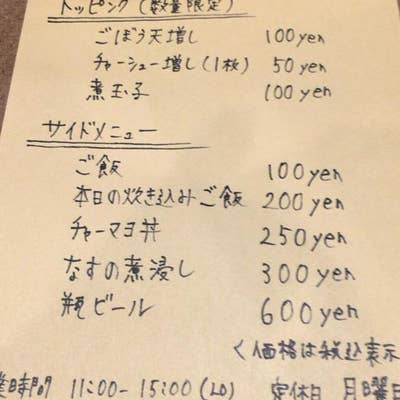 トッピング(数量限定)
ごぼう天増し 100yen
チャーシュー増し(1枚) 50yen
煮玉子 100yen
サイドメニュー
ご飯 100yen
本日の炊き込みご飯 200yen
チャーマヨ丼 250yen
なすの煮浸し 300yen
瓶ビール 600yen
〈価格は税込表示
業時間 11:00-15:00(LO) 定休日 月曜日